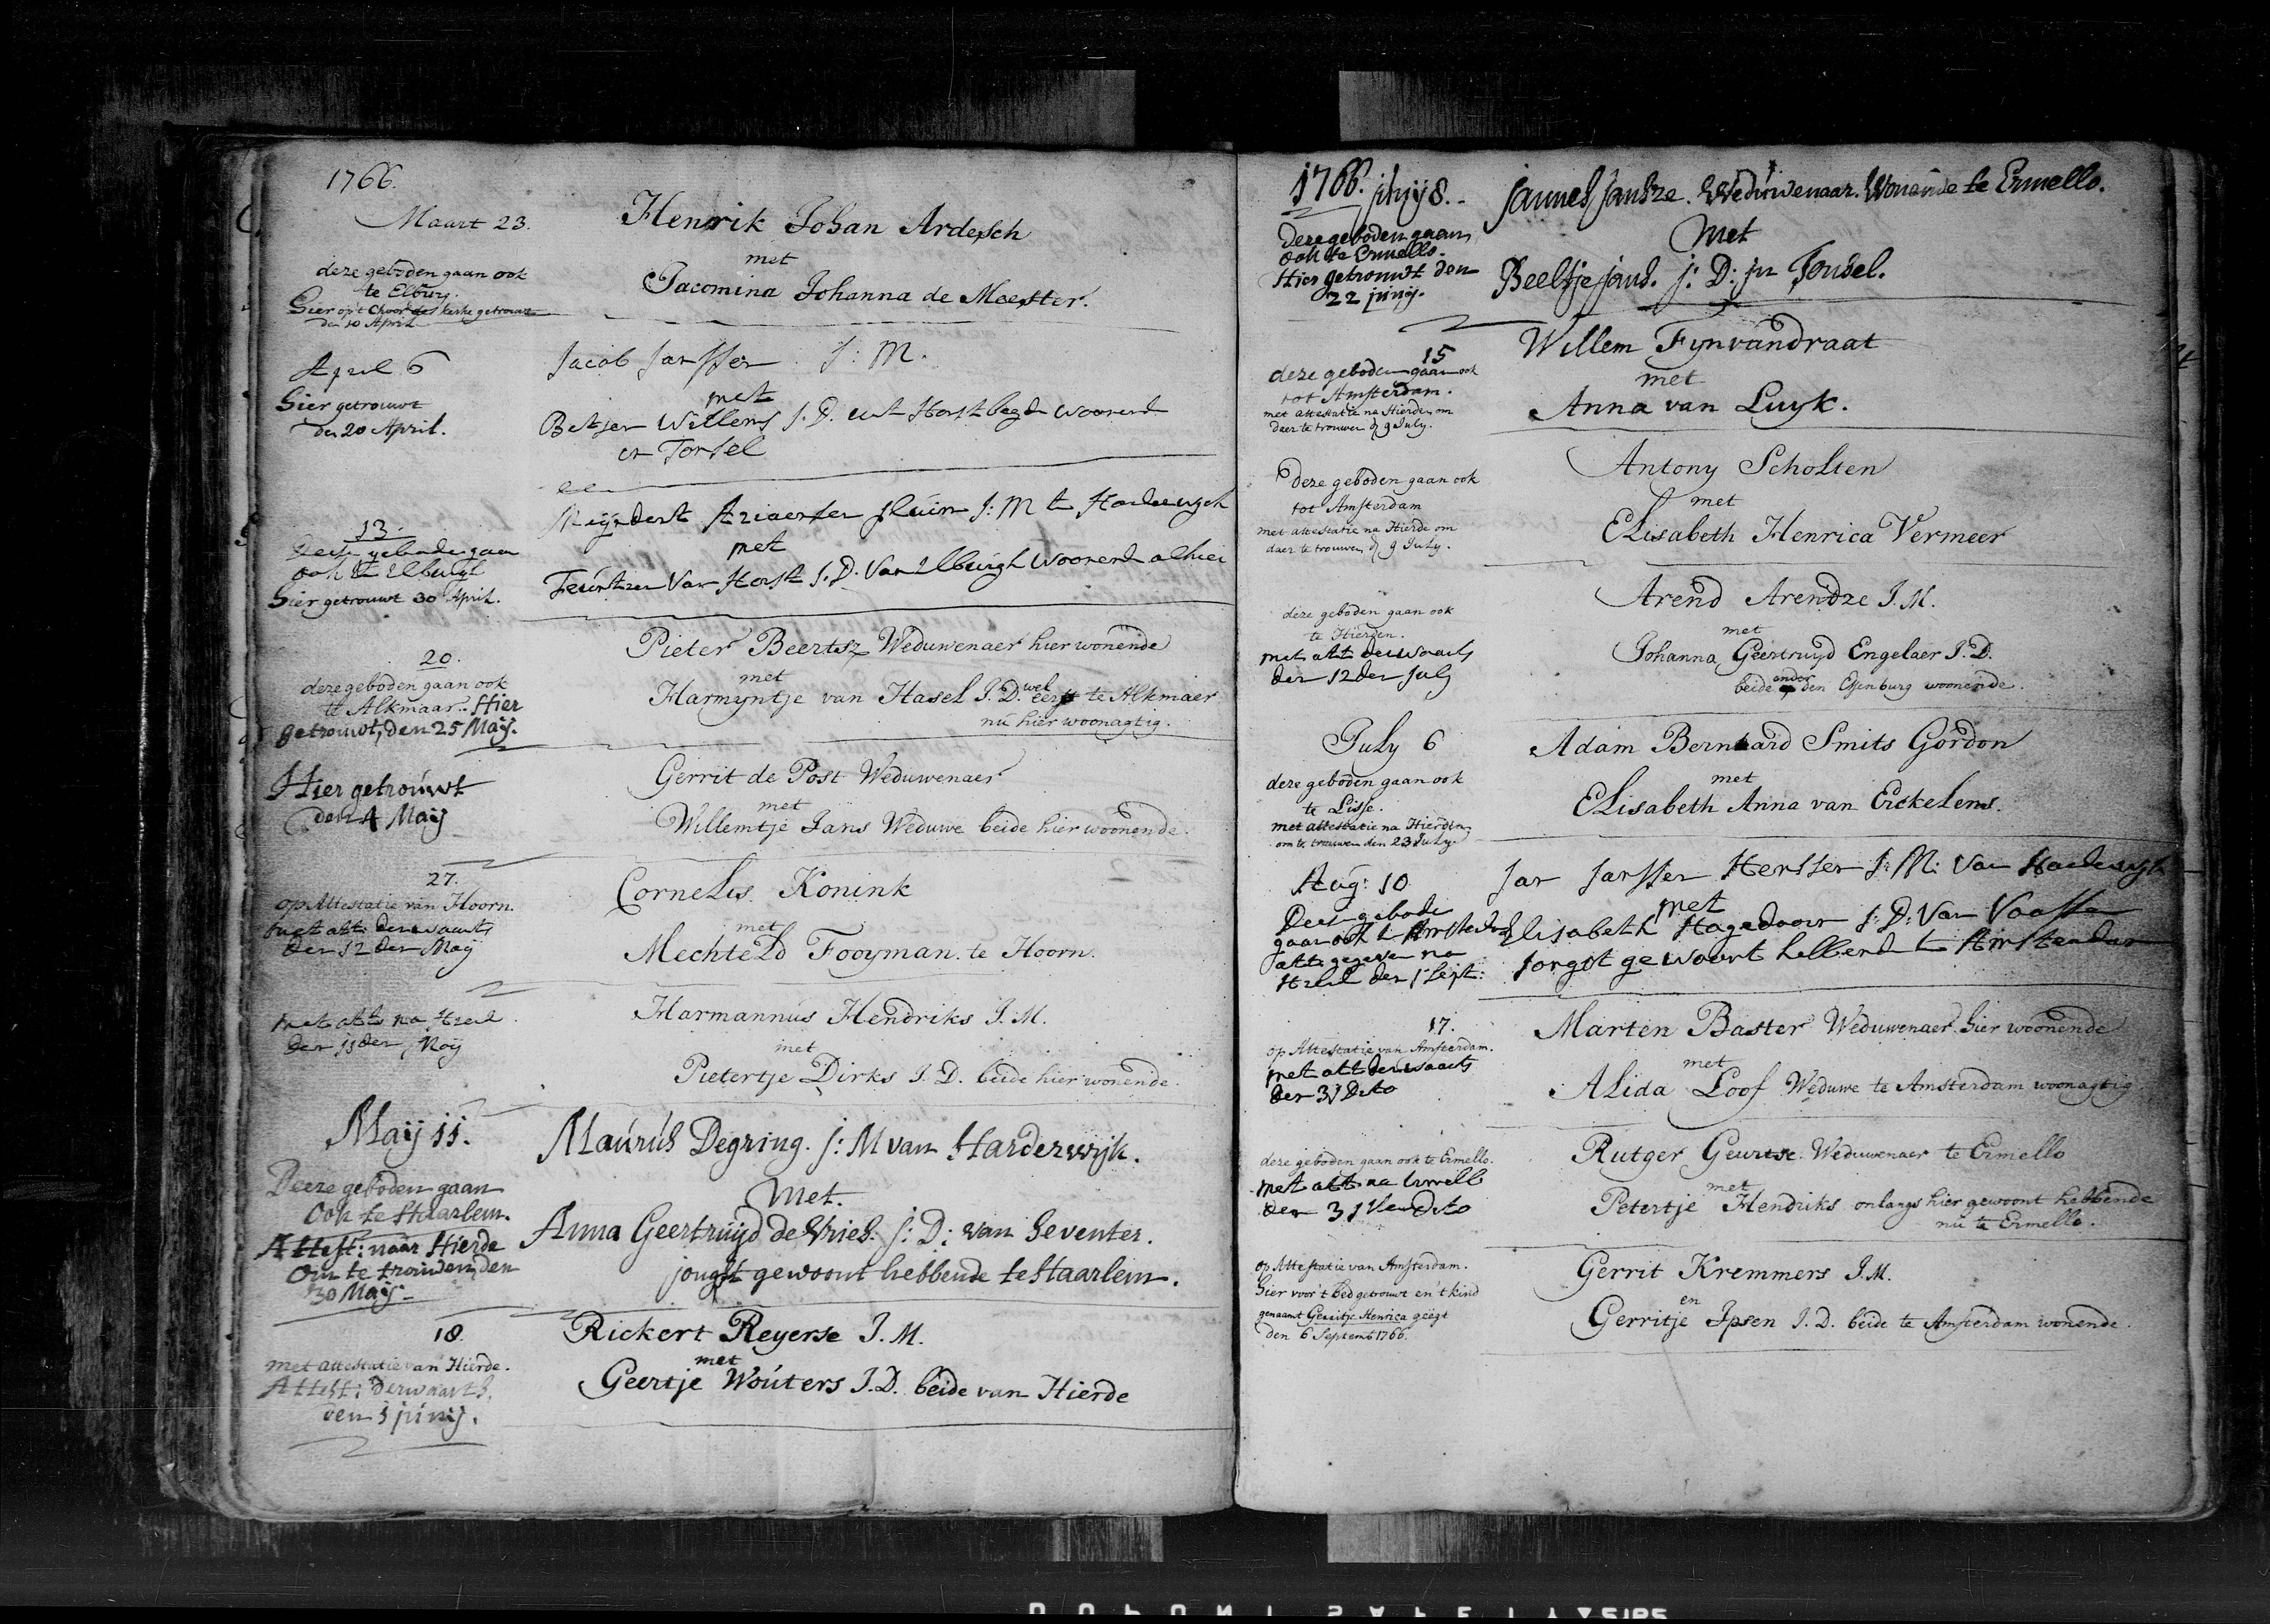 1766.
Maart 23.
Henrik Johan Ardesch
met
Jacomina Johanna de Meester.
deze geboden gaan ook
te Elburg.
Hier op't Choor der kerke getrouwt
den 10 April
April 6
Jacob Janssen J: M.
met
Betjen Willems J. D. uut Horst woonend
en Tonsel
Hier getrouwt
den 20 April.
13.
Meijndert Ariaensen Sluim J: M te Harderwyck
met
Teuntzen Van Horst J. D. Van Elburgh woonend alhier
Deese geboden gaen
ook te Elburgh
Hier getrouwt 30 April.
20.
Pieter Beertsz Weduwenaer hier wonende
met
Harmyntje van Hasel J. D. wel eerst te Alkmaer
nu hier woonagtig.
deze geboden gaan ook
te Alkmaar. Hier
getrouwt, den 25 Maij.
Gerrit de Post Weduwenaer
met
Willemtje Jans Weduwe beide hier woonende.
Hier getrouwt
den 4 Maij
27.
Cornelis Konink
met
Mechteld Fooyman. te Hoorn.
op Attestatie van Hoorn.
met att: derwaarts
den 12 den Maij
Harmannus Hendriks J. M.
met
Pietertje Dirks J. D. beide hier wonende.
met att: na
den 11 den Maij
Maij 11.
Maurus Degring. J: M van Harderwijk.
Met.
Anna Geertruijd de Vries. J: D: van Deventer.
jongst gewoont hebbende te Haarlem.
Deeze geboden gaan
Ook te Haarlem.
Attest: naar Hierde
Om te trouwen, den
30 Maij
18.
Rickert Reyerse J. M.
met
Geertje Wouters J. D. beide van Hierde
met attestatie van Hierde.
Attest: derwaarts.
den 1 junij.
1766. junij 8.
Jannes Jansze. Weduwenaar. Wonende te Ermello.
Met
Beeltje jans. J: D: in Tonsel.
Deze geboden gaan
ook te Ermello.
Hier getrouwt den
22 junij.
15
Willem Fynvandraat
met
Anna van Luyk.
deze geboden gaan ook
tot Amsterdam.
met attestatie na Hierden om
daer te trouwen d 9 July.
Antony Scholten
met
Elisabeth Henrica Vermeer
deze geboden gaan ook
tot Amsterdam
met attestatie na Hierde om
daer te trouwen, d 9 July.
Arend Arendze J. M.
met
Johanna Geertruyd Engelaer J. D.
beide onder den Essenburg woonende.
deze geboden gaan ook
te Hierden.
met att derwaarts
den 12 den July
July 6
Adam Bernhard Smits Gordon
met
Elisabeth Anna van Eickelens
deze geboden gaan ook
te Lisse.
met attestatie na Hierden
om te trouwen den 23 July.
Aug: 10
Jan Janssen Herssen J: M: van Harderwyk
met
Elisabeth Hagedoorn J: D: Van Vaassen
jongst gewoont hebbend te Amsterdam
Deese geboden
gaan ook te Amsterdam
att: gegeven na
den 1 Sept:
17.
Marten Baster Weduwenaer hier woonende
met
Alida Loof Weduwe te Amsterdam woonagtig
op Attestatie van Amsterdam.
met att derwaarts
den 31 Dito
Rutger Geurtse Weduwenaer te Ermello
met
Petertje Hendriks onlangs hier gewoont hebbende
nu te Ermello.
deze geboden gaan ook te Ermello.
met att na Ermello
den 31 sten Dito
Gerrit Kremmers J. M.
en
Gerritje Ipsen J. D. beide te Amsterdam wonende.
op Attestatie van Amsterdam.
Hier voor't bed getrouwt en't kind
genaamt Gerritje Henrica geëgt
den 6 Septemb 1766.